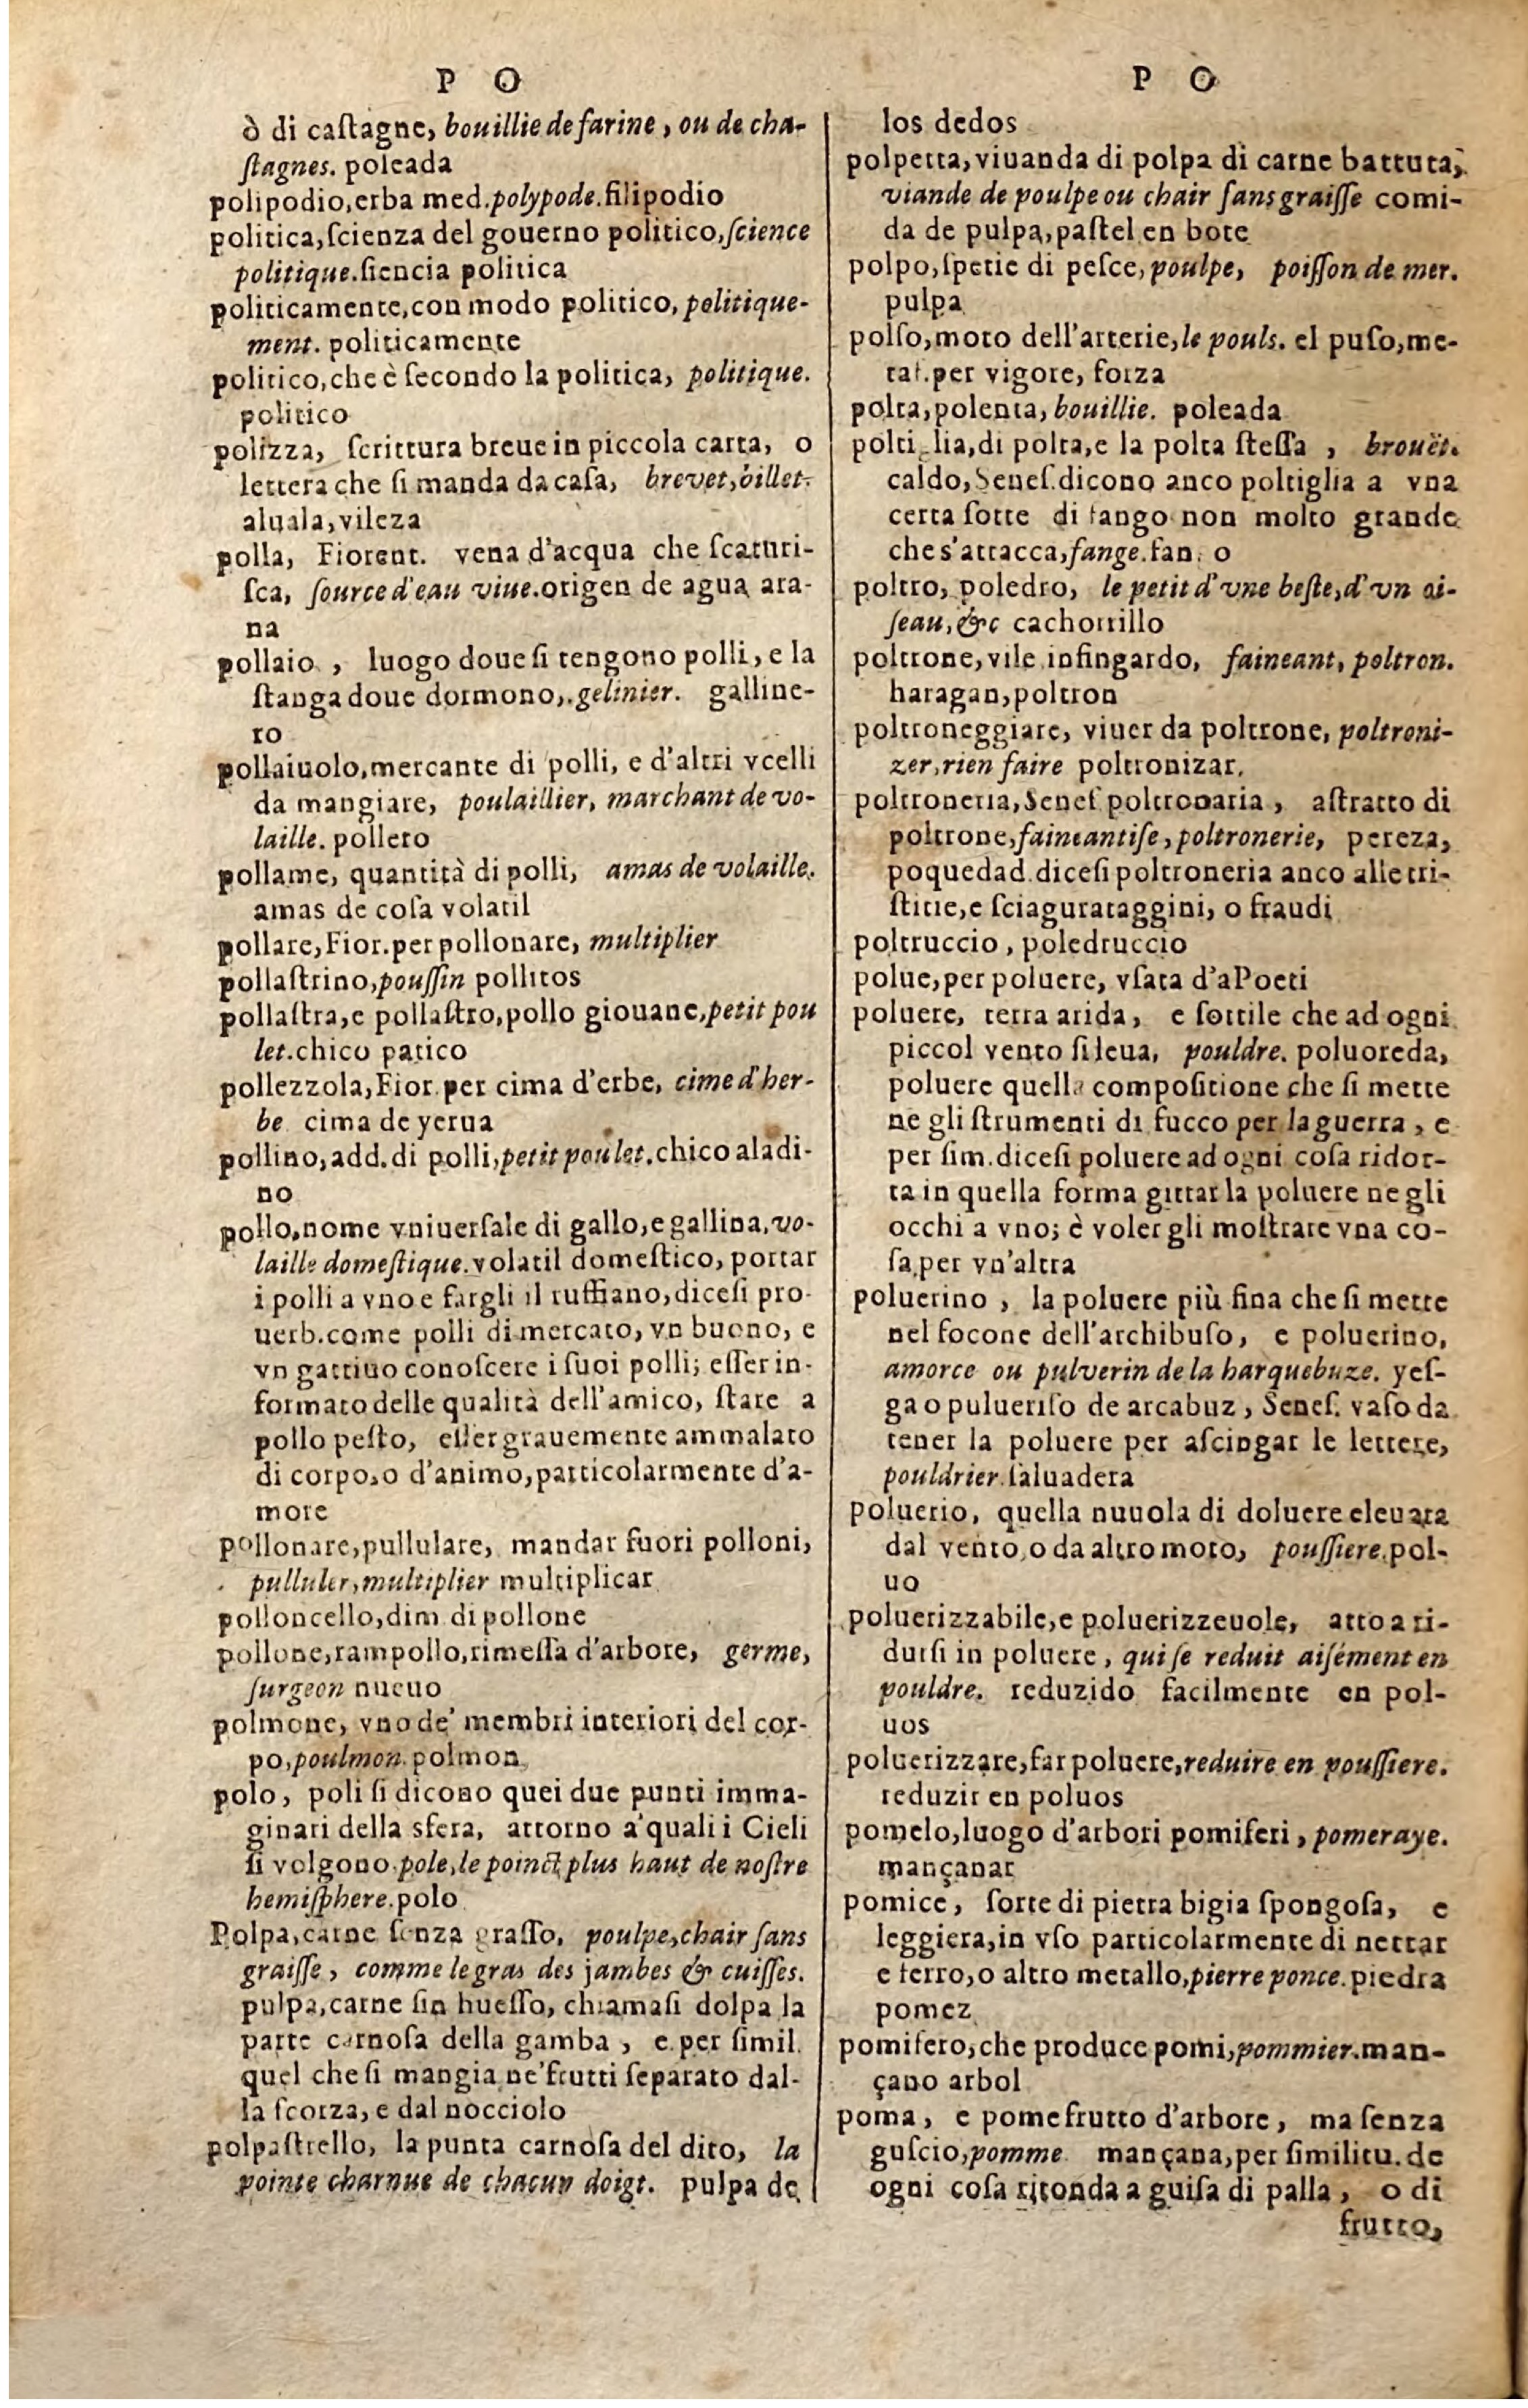 P O
ò di caſtagne, bouillie de farine, ou de cha-
ſtagnes. poleada
polipodio, erba med. polypode. filipodio
politica, ſcienza del gouerno politico, ſcience
politique. ſiencia politica
politicamente, con modo politico, politique-
ment. politicamente
politico, che è ſecondo la politica, politique.
politico
polizza, ſcrittura breue in piccola carta, o
lettera che ſi manda da caſa, brevet, billet.
aluala, vileza
polla, Fiorent. vena d'acqua che ſcaturi-
ſca, ſource d'eau viue. origen de agua ara-
na
pollaio, luogo doue ſi tengono polli, e la
ſtanga doue dormono,. gelinier. galline-
ro
pollaiuolo, mercante di polli, e d'altri vcelli
da mangiare, poulaillier, marchant de vo-
laille. pollero
pollame, quantità di polli, amas de volaille.
amas de coſa volatil
pollare, Fior. per pollonare, multiplier
pollaſtrino, pouſſin pollitos
pollaſtra, e pollaſtro, pollo giouane, petit pou
let. chico patico
pollezzola, Fior. per cima d'erbe, cime d'her-
be cima de yerua
pollino, add. di polli, petit poulet. chico aladi-
no
pollo, nome vniuerſale di gallo, e gallina, vo-
laille domeſtique. volatil domeſtico, portar
i polli a vno e fargli il ruffiano, diceſi pro-
uerb. come polli di mercato, vn buono, e
vn gattiuo conoſcere i ſuoi polli; eſſer in-
formato delle qualità dell'amico, ſtare a
pollo peſto, eſſer grauemente ammalato
di corpo, o d'animo, particolarmente d'a-
more
pollonare, pullulare, mandar fuori polloni,
pulluler, multiplier multiplicar
polloncello, dim. di pollone
pollone, rampollo, rimeſſa d'arbore, germe,
ſurgeon nueuo
polmone, vno de' membri interiori del cor-
po, poulmon. polmon
polo, poli ſi dicono quei due punti imma-
ginari della sfera, attorno a' quali i Cieli
ſi volgono. pole, le poinct plus haut de noſtre
hemiſphere. polo
Polpa, carne ſenza graſſo, poulpe, chair ſans
graiſſe, comme le gras des jambes & cuiſſes.
pulpa, carne ſin hueſſo, chiamaſi dolpa la
parte carnoſa della gamba, e per ſimil.
quel che ſi mangia ne' frutti ſeparato dal-
la ſcorza, e dal nocciolo
polpaſtrello, la punta carnoſa del dito, la
pointe charnue de chacun doigt. pulpa de
P O
los dedos
polpetta, viuanda di polpa di carne battuta,
viande de poulpe ou chair ſans graiſſe comi-
da de pulpa, paſtel en bote
polpo, ſpetie di peſce, poulpe, poiſſon de mer.
pulpa
polſo, moto dell'arterie, le pouls. el puſo, me-
taf. per vigore, forza
polta, polenta, bouillie. poleada
polti lia, di polta, e la polta ſteſſa, brouët.
caldo, Seneſ. dicono anco poltiglia a vna
certa ſotte di fango non molto grande
che s'attacca, fange. fan o
poltro, poledro, le petit d'vne beſte, d'vn oi-
ſeau, &c cachorrillo
poltrone, vile infingardo, faineant, poltron.
haragan, poltron
poltroneggiare, viuer da poltrone, poltroni-
zer, rien faire poltronizar.
poltroneria, Seneſ poltronaria, aſtratto di
poltrone, faineantiſe, poltronerie, pereza,
poquedad. diceſi poltroneria anco alle tri-
ſtitie, e ſciagurataggini, o fraudi
poltruccio, poledruccio
polue, per poluere, vſata d'a Poeti
poluere, terra arida, e ſottile che ad ogni
piccol vento ſi leua, pouldre. poluoreda,
poluere quella compoſitione che ſi mette
ne gli ſtrumenti di fucco per la guerra, e
per ſim. diceſi poluere ad ogni coſa ridot-
ta in quella forma gittar la poluere ne gli
occhi a vno; è voler gli moſtrare vna co-
ſa, per vn'altra
poluerino, la poluere più fina che ſi mette
nel focone dell'archibuſo, e poluerino,
amorce ou pulverin de la harquebuze. yeſ-
ga o pulueriſo de arcabuz, Seneſ. vaſo da
tener la poluere per aſciugar le lettere,
pouldrier. ſaluadera
poluerio, quella nuuola di doluere eleuata
dal vento, o da altro moto, pouſſiere. pol-
uo
poluerizzabile, e poluerizzeuole, atto a ri-
durſi in poluere, qui ſe reduit aiſément en
pouldre. reduzido facilmente en pol-
uos
poluerizzare, far poluere, reduire en pouſſiere.
reduzir en poluos
pomelo, luogo d'arbori pomiferi, pomeraye.
mançanar
pomice, ſorte di pietra bigia ſpongoſa, e
leggiera, in vſo particolarmente di nettar
e ferro, o altro metallo, pierre ponce. piedra
pomez
pomifero, che produce pomi, pommier. man-
çano arbol
poma, e pome frutto d'arbore, ma ſenza
guſcio, pomme mançana, per ſimilitu. de
ogni coſa ritonda a guiſa di palla, o di
frutto,